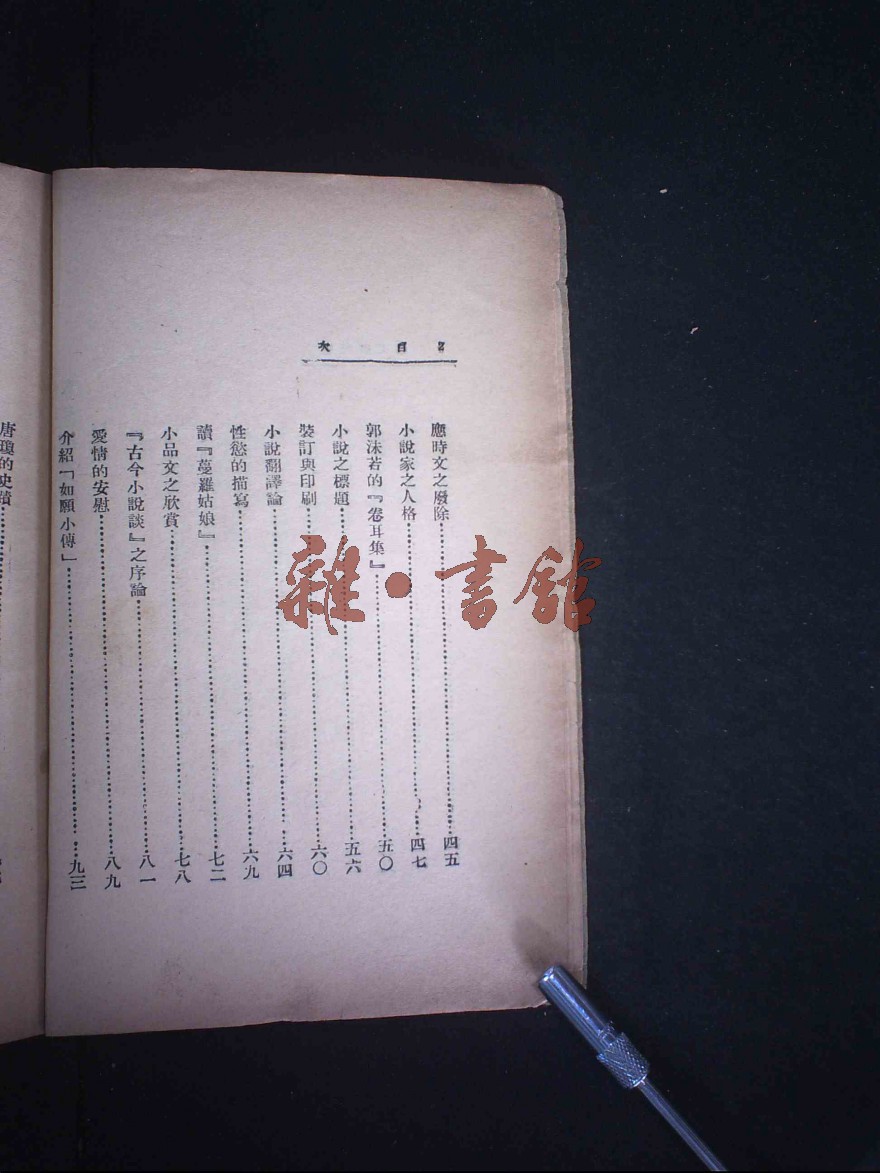 2 目 次
應時文之廢除……四五
小說家之人格……四七
郭沫若的『卷耳集』……五〇
小說之標題……五六
裝訂與印刷……六〇
小說翻譯論……六四
性慾的描寫……六九
讀『蔓羅姑娘』……七二
小品文之欣賞……七八
『古今小說談』之序論……八一
愛情的安慰……八九
介紹「如願小傳」……九三
唐瓊的史蹟……
雜·書館